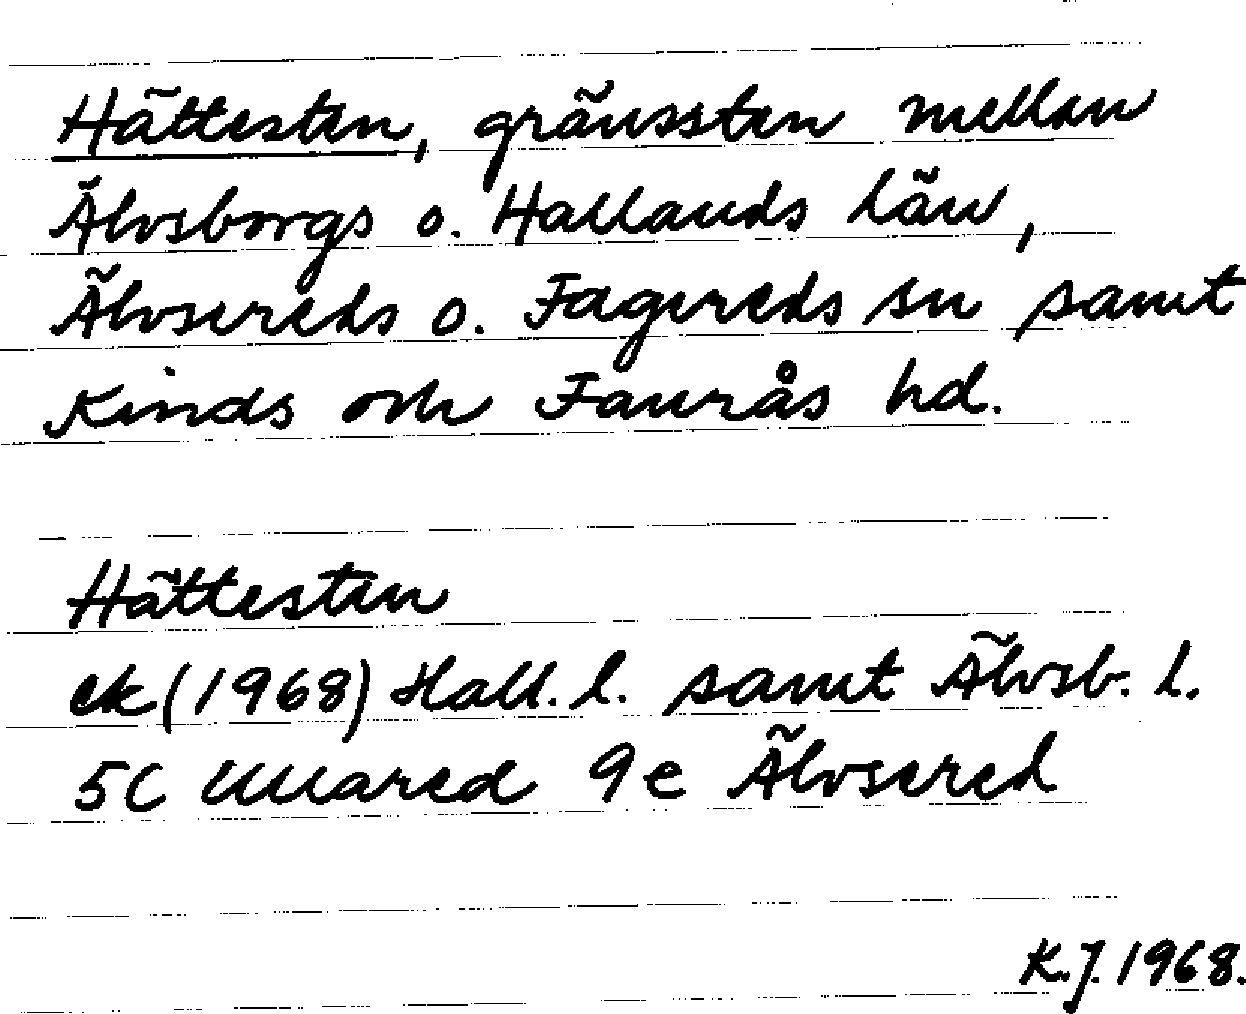 Hättesten, gränssten mellan
Älvsborgs o. Hallands län,
Älvsereds o. Fagereds sn samt
Kinds och Faurås hd.
Hättesten
ek (1968) Hall. l. samt Älvsb. l.
5C Ullared 9e Älvsered
K.J. 1968.